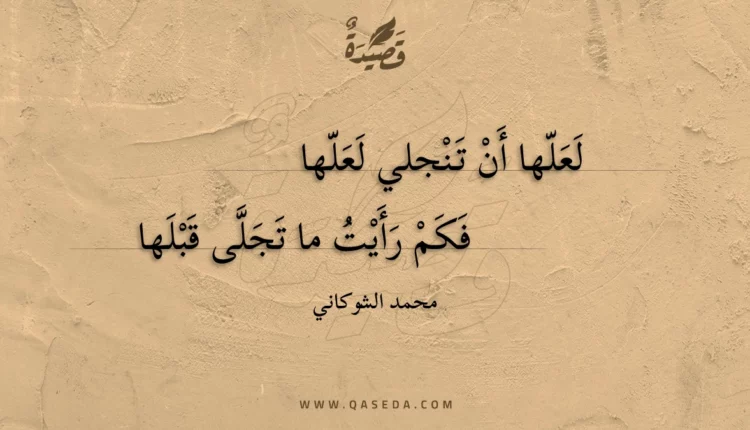 قَصِيدَةٌ
لَعَلّها أَنْ تَنْجلي لَعَلّها
فَكَمْ رَأَيْتُ ما تَجَلَّى قَبْلَها
محمد الشوكاني
WWW.QASEDA.COM